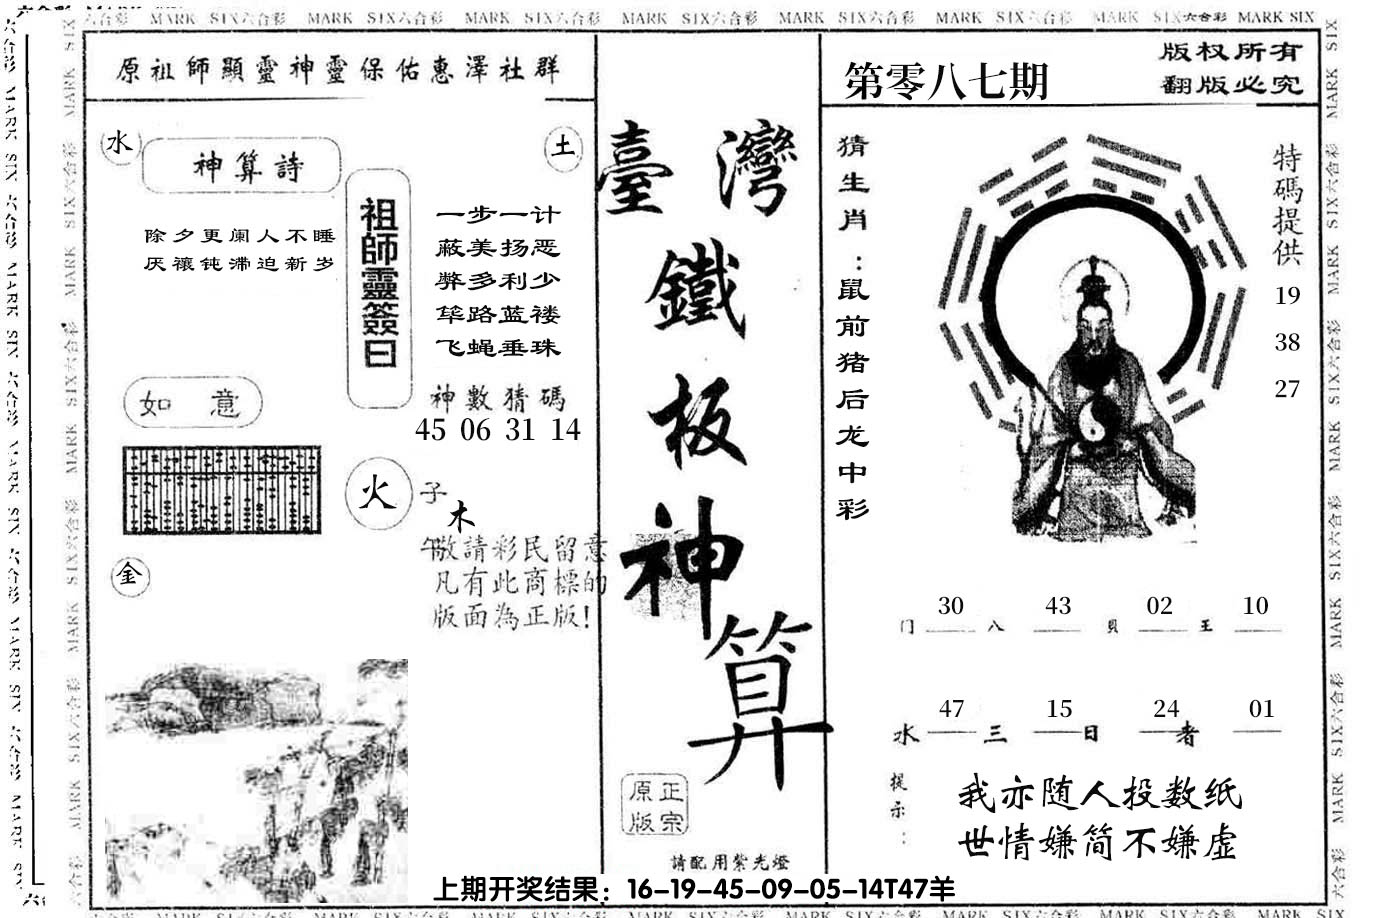 六合彩 MARK SIX六合彩 MARK SIX六合彩 MARK SIX六合彩 MARK SIX六合彩 MARK SIX六合彩 MARK SIX六合彩 MARK SIX六合彩 MARK SIX
原祖師顯靈神靈保佑惠澤社群
水
神算詩
土
除夕更阑人不睡
厌禳钝滞迫新岁
祖師靈簽曰
一步一计
蔽美扬恶
弊多利少
荜路蓝褛
飞蝇垂珠
如意
神數猜碼
45 06 31 14
火
子
木
午
金
敬請彩民留意
凡有此商標的
版面為正版!
臺灣
鐵
板
神
算
正宗
原版
請配用紫光燈
第零八七期
版权所有
翻版必究
猜生肖:鼠前猪后龙中彩
特碼提供
19
38
27
30 43 02 10
门 八 貝 王
47 15 24 01
水 三 日 者
提示:
我亦随人投数纸
世情嫌简不嫌虚
上期开奖结果：16-19-45-09-05-14T47羊